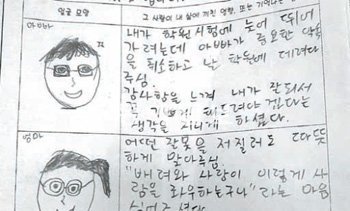 얼굴 모양
그 사람이 내 삶에 끼친 영향, 또는 기억나는
아빠
내가 학원시험에 늦어 뛰어
가려는데 아빠가 중요한 약속
을 취소하고 날 학원에 데려다
주심.
감사함을 느껴 내가 잘되서
꼭 기쁘게 해드려야 겠다는
생각을 지니게 하셨다.
엄마
어떤 잘못을 저질러도 따뜻
하게 말아주심.
"배려와 사랑이 이렇게 사
람을 좌우하는구나" 라는 마음
심어주셨다.